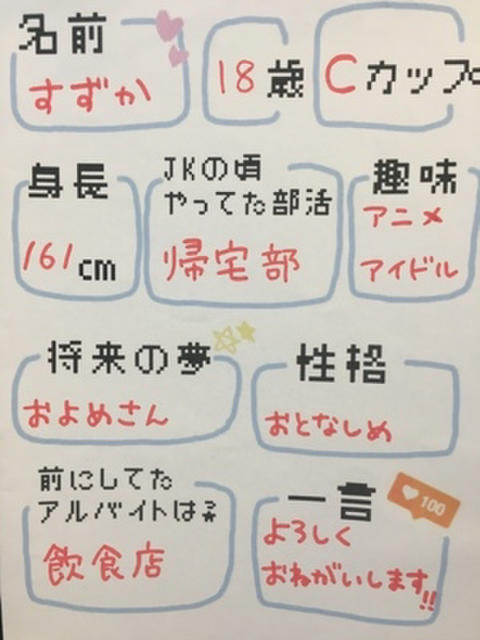 名前
すずか
18歳
Cカップ
身長
161cm
JKの頃
やってた部活
帰宅部
趣味
アニメ
アイドル
将来の夢
およめさん
性格
おとなしめ
前にしてた
アルバイトは?
飲食店
一言
100
よろしく
おねがいします!!